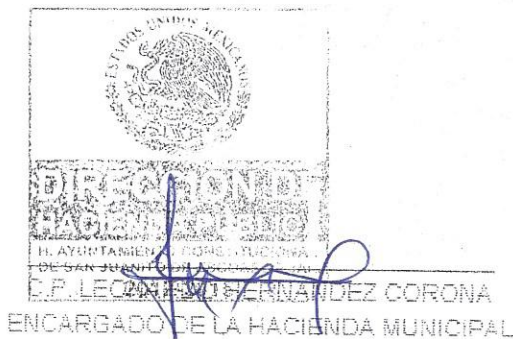 ESTADOS UNIDOS MEXICANOS
DIRECCION DE
HACIENDA
H. AYUNTAMIENTO
DE SAN JUANITO
C.P. HERNANDEZ CORONA
ENCARGADO DE LA HACIENDA MUNICIPAL